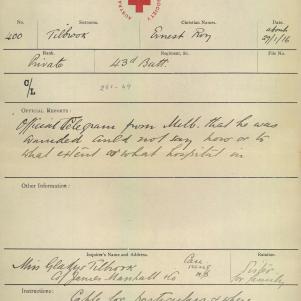 No.
Surname.
Christian Names.
Date
400
Tilbrook
Ernest Roy
about
29/1/16
Rank.
Regiment, &c.
File No.
Private
43d Batt.
C/L
OFFICIAL REPORTS:
Official Telegram from Melb. that he was
wounded could not say how or to
what extent or what hospital in
Other Information:
Inquirer's Name and Address.
Relation.
Miss Gladys Tilbrook
C/ James Marshall & Co
Sister
Instructions:
Cable for particulars & where